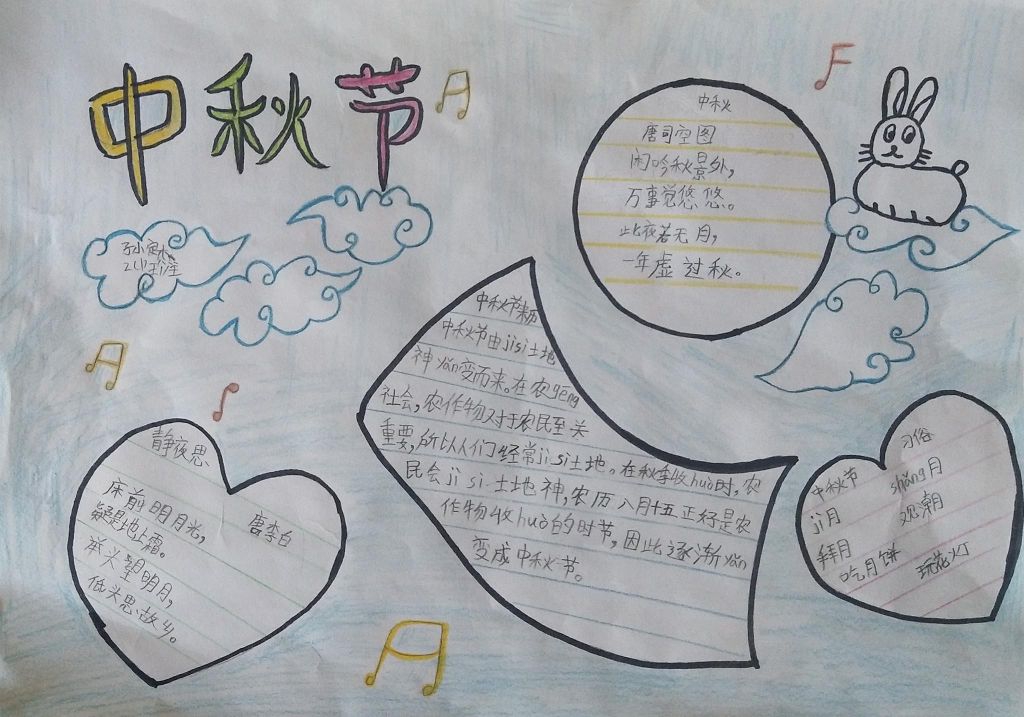 中秋节
中秋
唐司空图
闲吟秋景外，
万事觉悠悠。
此夜若无月，
一年虚过秋。
中秋节来历
中秋节由jìsì土地
神yǎn变而来。在农gēng
社会，农作物对于农民至关
重要，所以人们经常jì sì土地。在秋季收huò时，农
民会jì sì土地神，农历八月十五正好是农
作物收huò的时节，因此逐渐yǎn
变成中秋节。
静夜思
唐李白
床前明月光，
疑是地上霜。
举头望明月，
低头思故乡。
习俗
中秋节
shǎng月
jì月
观潮
拜月
吃月饼
玩花灯